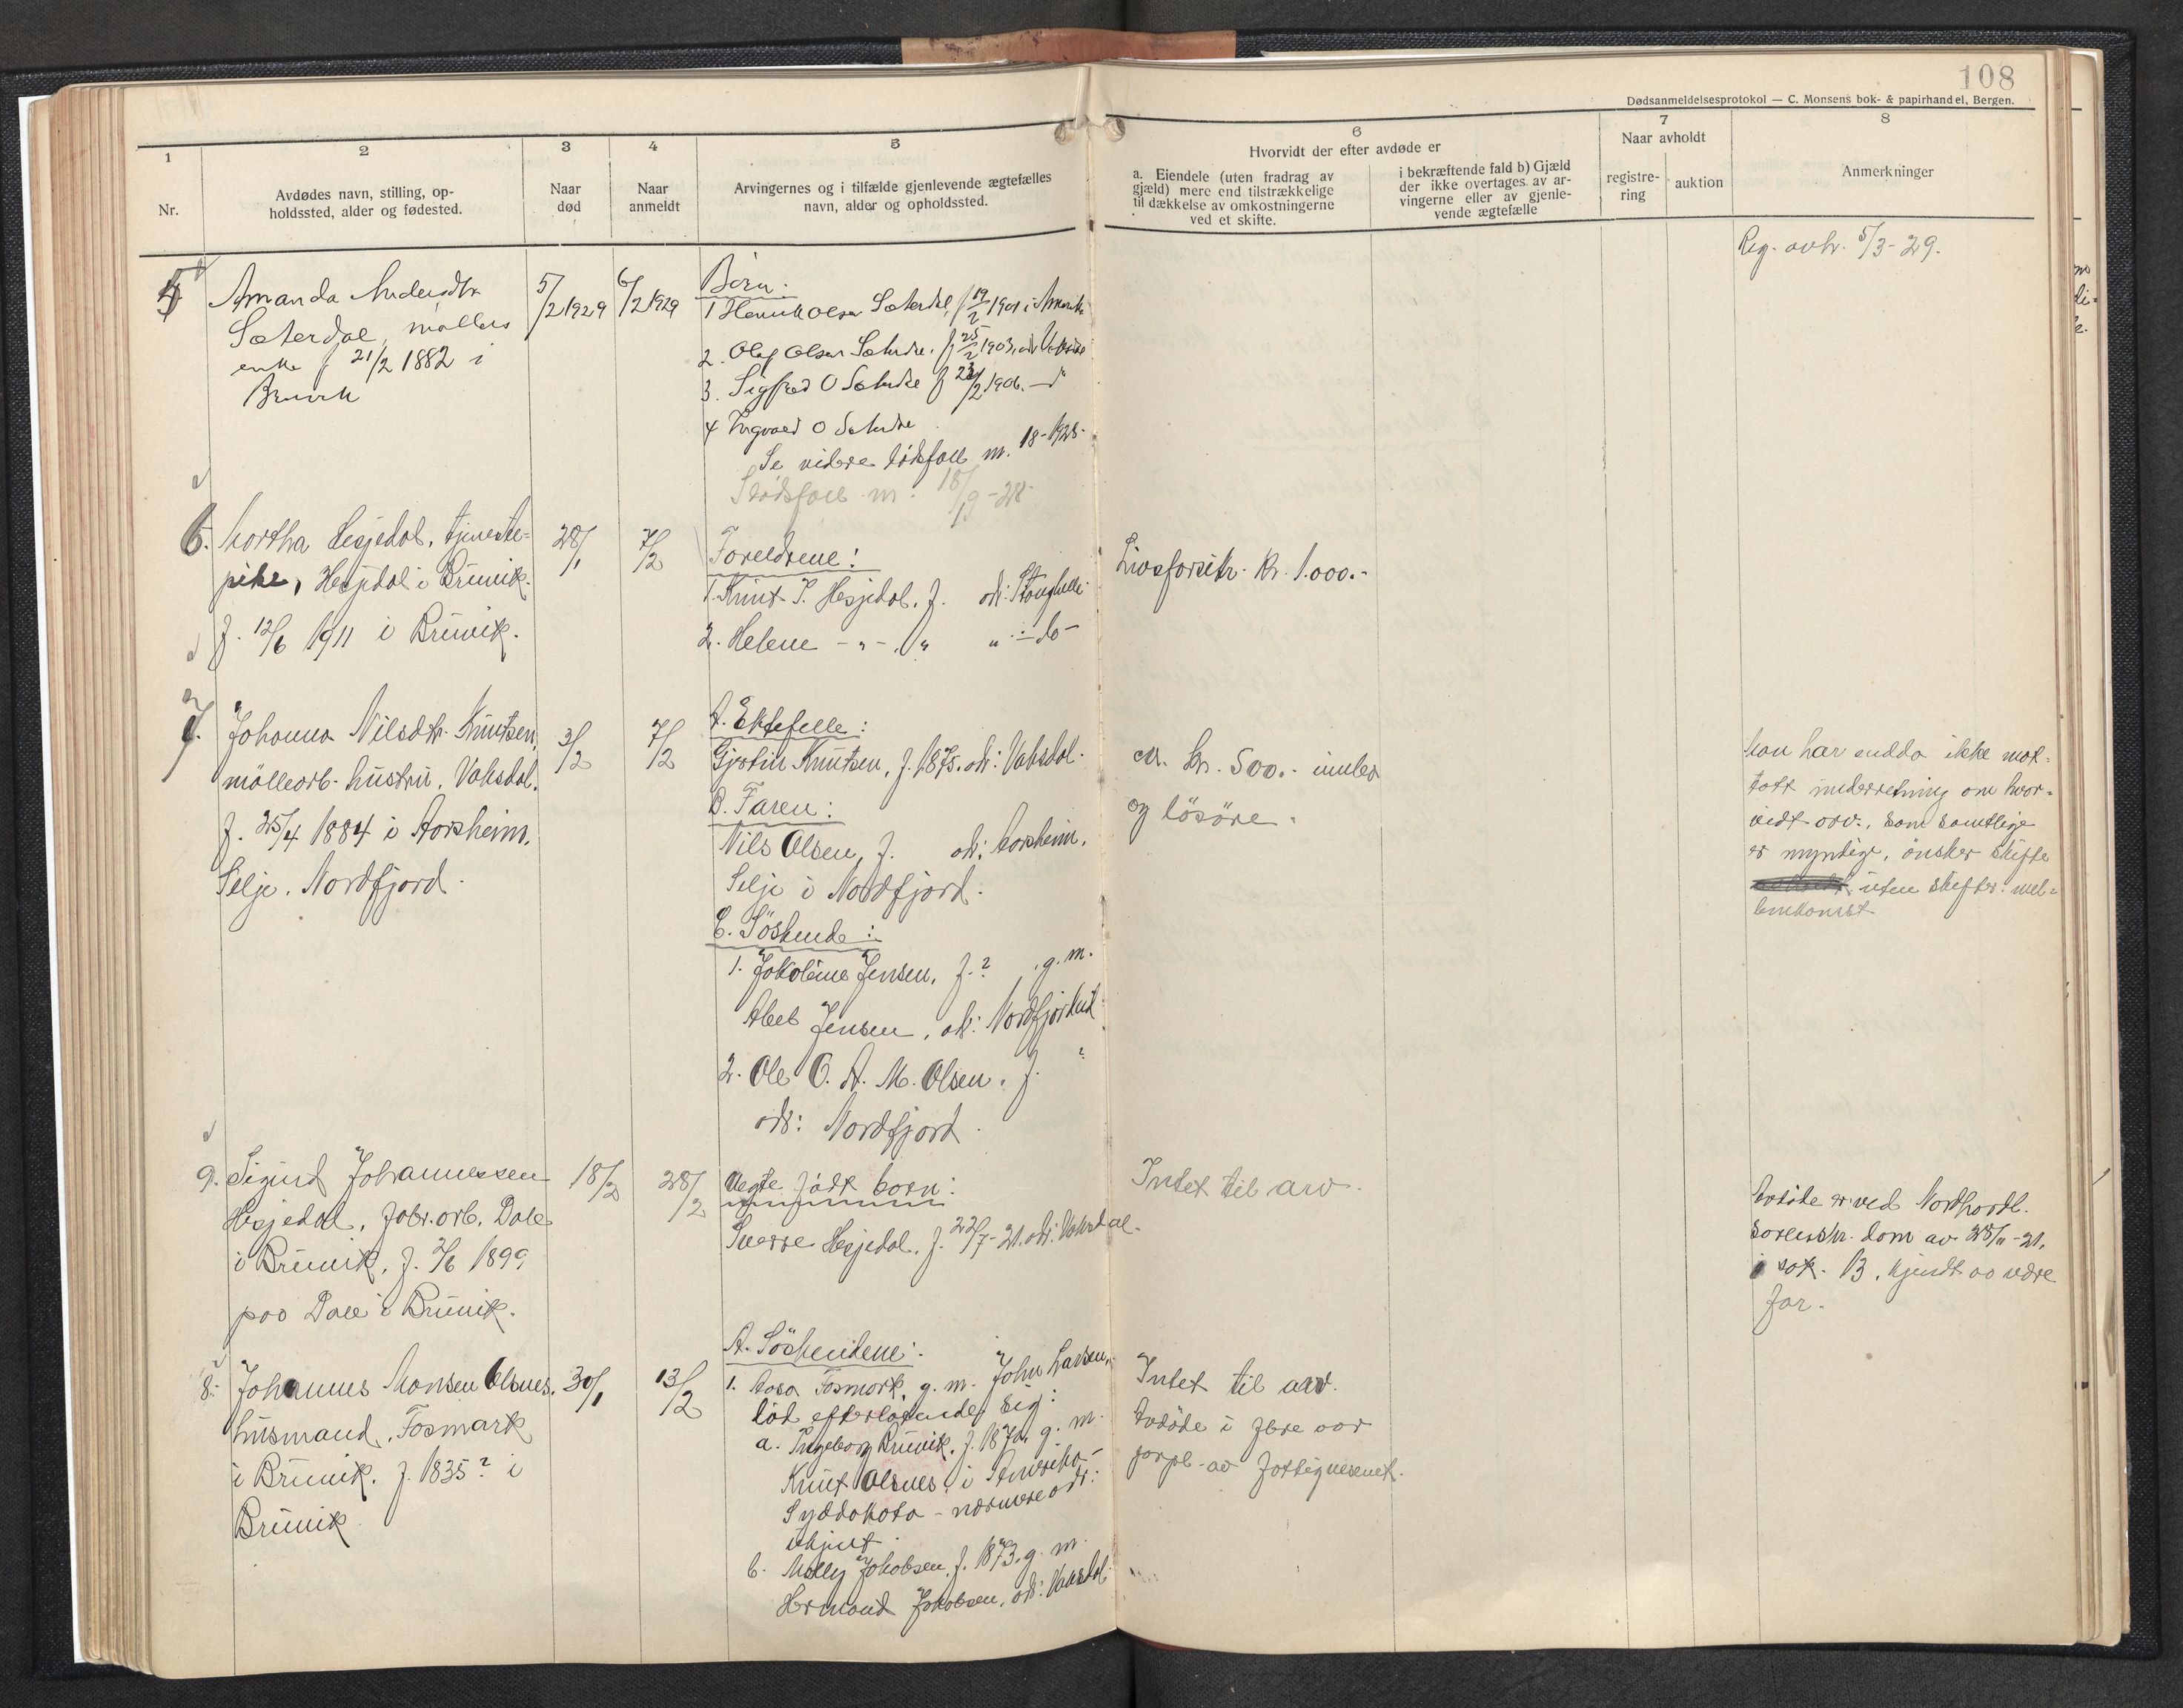 108
Dødsanmeldelsesprotokol — C. Monsens bok- & papirhandel, Bergen.
1
Nr.
2
Avdødes navn, stilling, op-
holdssted, alder og fødested.
3
Naar
død
4
Naar
anmeldt
5
Arvingernes og i tilfælde gjenlevende ægtefælles
navn, alder og opholdssted.
6
Hvorvidt der efter avdøde er
a. Eiendele (uten fradrag av
gjæld) mere end tilstrækkelige
til dækkelse av omkostningerne
ved et skifte.
i bekræftende fald b) Gjæld
der ikke overtages av ar-
vingerne eller av gjenle-
vende ægtefælle
7
Naar avholdt
registre-
ring
auktion
8
Anmerkninger
5
Amanda Andersdtr
Sæterdal, møllers
enke f 21/2 1882 i
Bruvik
5/2 1929
6/2 1929
Börn.
1 Henrik Olsen Sæterdal, f 19/2 1901 i Amerika
2. Olaf Olsen Sæterdal, f 25/2 1903, adr Vaksdal
3. Sigfred O Sæterdal f 23/2 1906. —"
4 Ingvald O Sæterdal
Se videre dödsfall nr. 18-1928.
S dödsfall nr. 18/19-28.
Reg. avh. 5/3-29.
6. Martha Hesjedal, tjeneste=
pike, Hesjedal i Brüvik.
f. 12/6 1911 i Brüvik.
28/1
7/2
Foreldrene:
1. Knut P. Hesjedal, f. adr: Stanghelle
2. Helene -"- , " " -do-
Livsforsikr. Kr. 1.000.-
7. Johanna Nilsdtr. Knutsen,
möllearb. hustru, Vaksdal.
f. 25/4 1884 i Aarsheim,
Selje, Nordfjord.
3/2
7/2
A. Ektefelle:
Gjertin Knutsen, f. 1875. adr: Vaksdal.
B. Faren:
Nils Olsen, f. adr: Aarsheim,
Selje i Nordfjord.
C. Söskende:
1. Jakobine Jensen, f. ? , g. m.
Abel Jensen, adr: Nordfjordeid
2. Ole O. A. M. Olsen, f. "
adr: Nordfjord.
ca. kr. 500.- innbo
og lösöre.
Man har endda ikke mot=
tatt underretning om hvor=
vidt arv., som samtlige
er myndige, önsker skifte
uten skifter. mel=
lemkomst
9. Sigurd Johannessen
Hesjedal, fabr. arb. Dale
i Brüvik, f. 2/6 1899
paa Dale i Brüvik.
18/2
28/2
Uegte född barn:
Sverre Hesjedal, f. 22/7-21. adr: Vaksdal.
Intet til arv.
Avdöde er ved Nordhordl.
sorenskr. dom av 28/11-21,
i sak. B, kjendt aa være
far.
8. Johannes Monsen Olsnes,
husmand, Fosmark
i Brüvik. f. 1835? i
Brüvik.
30/1
13/2
A. Söskendene:
1. Aasa Fosmark, g. m. John Larsen,
död efterlatende sig:
a. Ingeborg Brüvik, f. 1870, g. m.
Knut Olsnes, i Amerika
Syddakota - nærmere adr:
ukjent.
b. Molly Jakobsen, f. 1873, g. m.
Hermand Jakobsen, adr: Vaksdal
Intet til arv.
Avdöde i flere aar
forpl. av fattigvesenet.